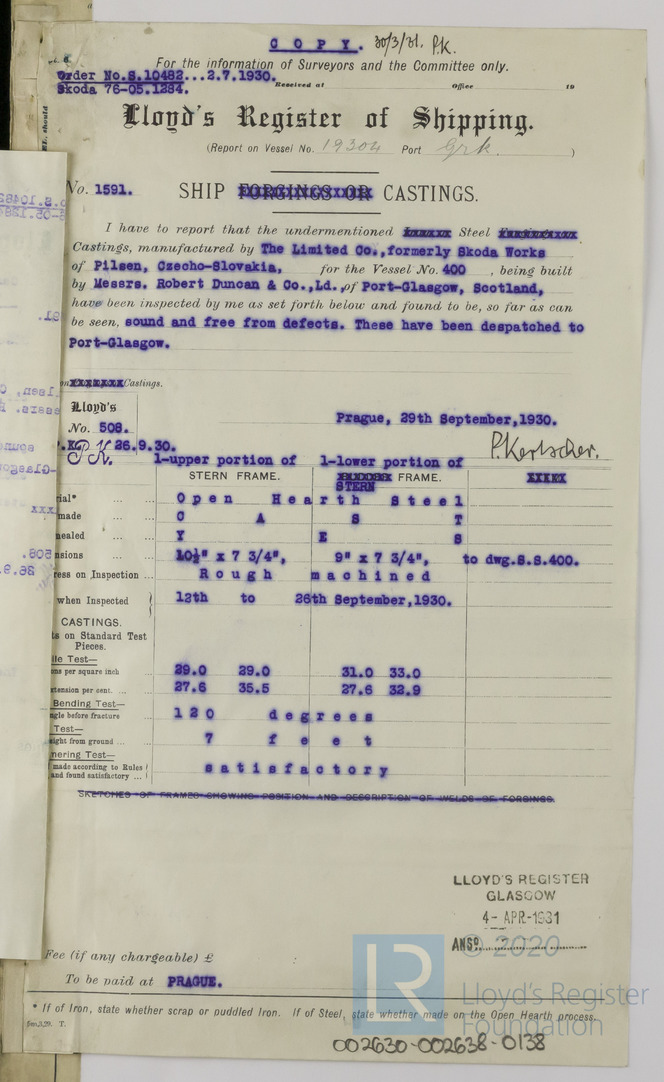 COPY. 30/3/31. P.K.
For the information of Surveyors and the Committee only.
Order No.S.10482...2.7.1930.
Skoda 76-05.1284. Received at Office 19
Lloyd's Register of Shipping.
(Report on Vessel No. 19304 Port Grk. )
No. 1591. SHIP FORGINGS OR CASTINGS.
I have to report that the undermentioned Steel
Castings, manufactured by The Limited Co., formerly Skoda Works
of Pilsen, Czecho-Slovakia, for the Vessel No. 400 , being built
by Messrs. Robert Duncan & Co., Ld., of Port-Glasgow, Scotland,
have been inspected by me as set forth below and found to be, so far as can
be seen, sound and free from defects. These have been despatched to
Port-Glasgow.
on Castings.
Lloyd's
No. 508.
Prague, 29th September, 1930.
P.K. 26.9.30.
P.Kertscher.
1-upper portion of 1-lower portion of
STERN FRAME. STERN FRAME.
rial* ... ... Open Hearth Steel
made ... ... CAST
nealed ... ... YES
nsions ... ... 10½" x 7 3/4", 9" x 7 3/4", to dwg.S.S.400.
ress on Inspection ... Rough machined
when Inspected 12th to 26th September, 1930.
CASTINGS.
ts on Standard Test
Pieces.
ile Test—
ons per square inch 29.0 29.0 31.0 33.0
xtension per cent. ... ... 27.6 35.5 27.6 32.9
Bending Test—
ngle before fracture 120 degrees
Test—
eight from ground ... ... 7 feet
mering Test—
made according to Rules
and found satisfactory ... satisfactory
SKETCHES OF FRAMES SHOWING POSITION AND DESCRIPTION OF WELDS OF FORGINGS.
LLOYD'S REGISTER
GLASGOW
4- APR-1931
ANSD
© 2020
Fee (if any chargeable) £ :
To be paid at PRAGUE.
Lloyd's Register
Foundation
* If of Iron, state whether scrap or puddled Iron. If of Steel, state whether made on the Open Hearth process.
002630-002638-0138